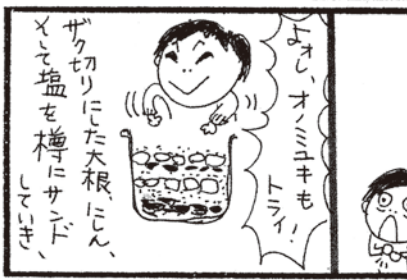 よォし、オノミユキも
トライ!
ザク切りにした大根、にしん、
そして塩を樽にサンド
していき、